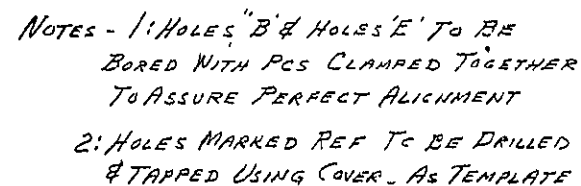 NOTES - 1: HOLES "B" & HOLES 'E' TO BE
BORED WITH PCS CLAMPED TOGETHER
TO ASSURE PERFECT ALIGNMENT
2: HOLES MARKED REF TO BE DRILLED
& TAPPED USING COVER - AS TEMPLATE